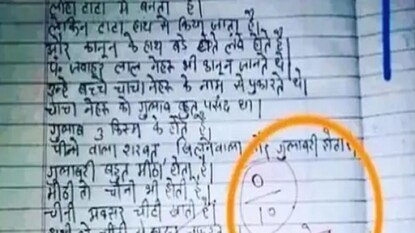 लोटा टाटा में बनता है।
लेकिन टाटा हाथ से किया जाता है।
और कानून के हाथ बडे होते लंबे होते है।
पं. जवाहर लाल नेहरू भी कानून जानते थे।
उन्हे बच्चे चाचा नेहरू के नाम से पुकारते थे।
चाचा नेहरू को गुलाब बहुत पसंद था।
गुलाब 3 किस्म के होते है।
पीने वाला शरबत,
गुलाबरी होता
गुलाबरी बहुत मीठा होता है
मीठा तो चीनी भी होती है
चीनी अक्सर चींटी खाती है।
0
10